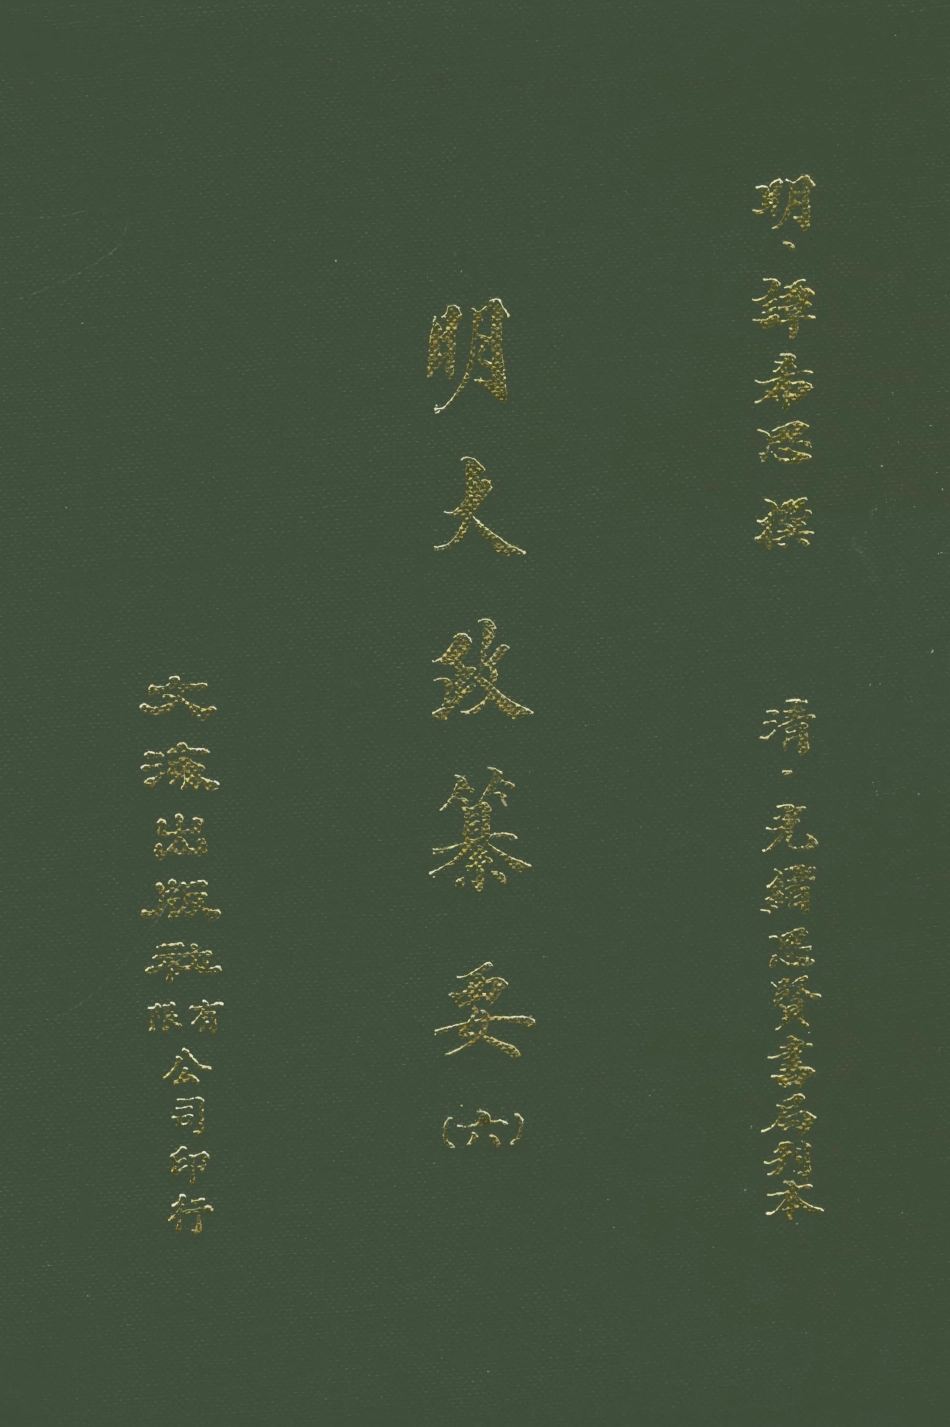 明·譚希思撰　清·光緒思賢書局刊本
明大政纂要(六)
文海出版社有限公司印行